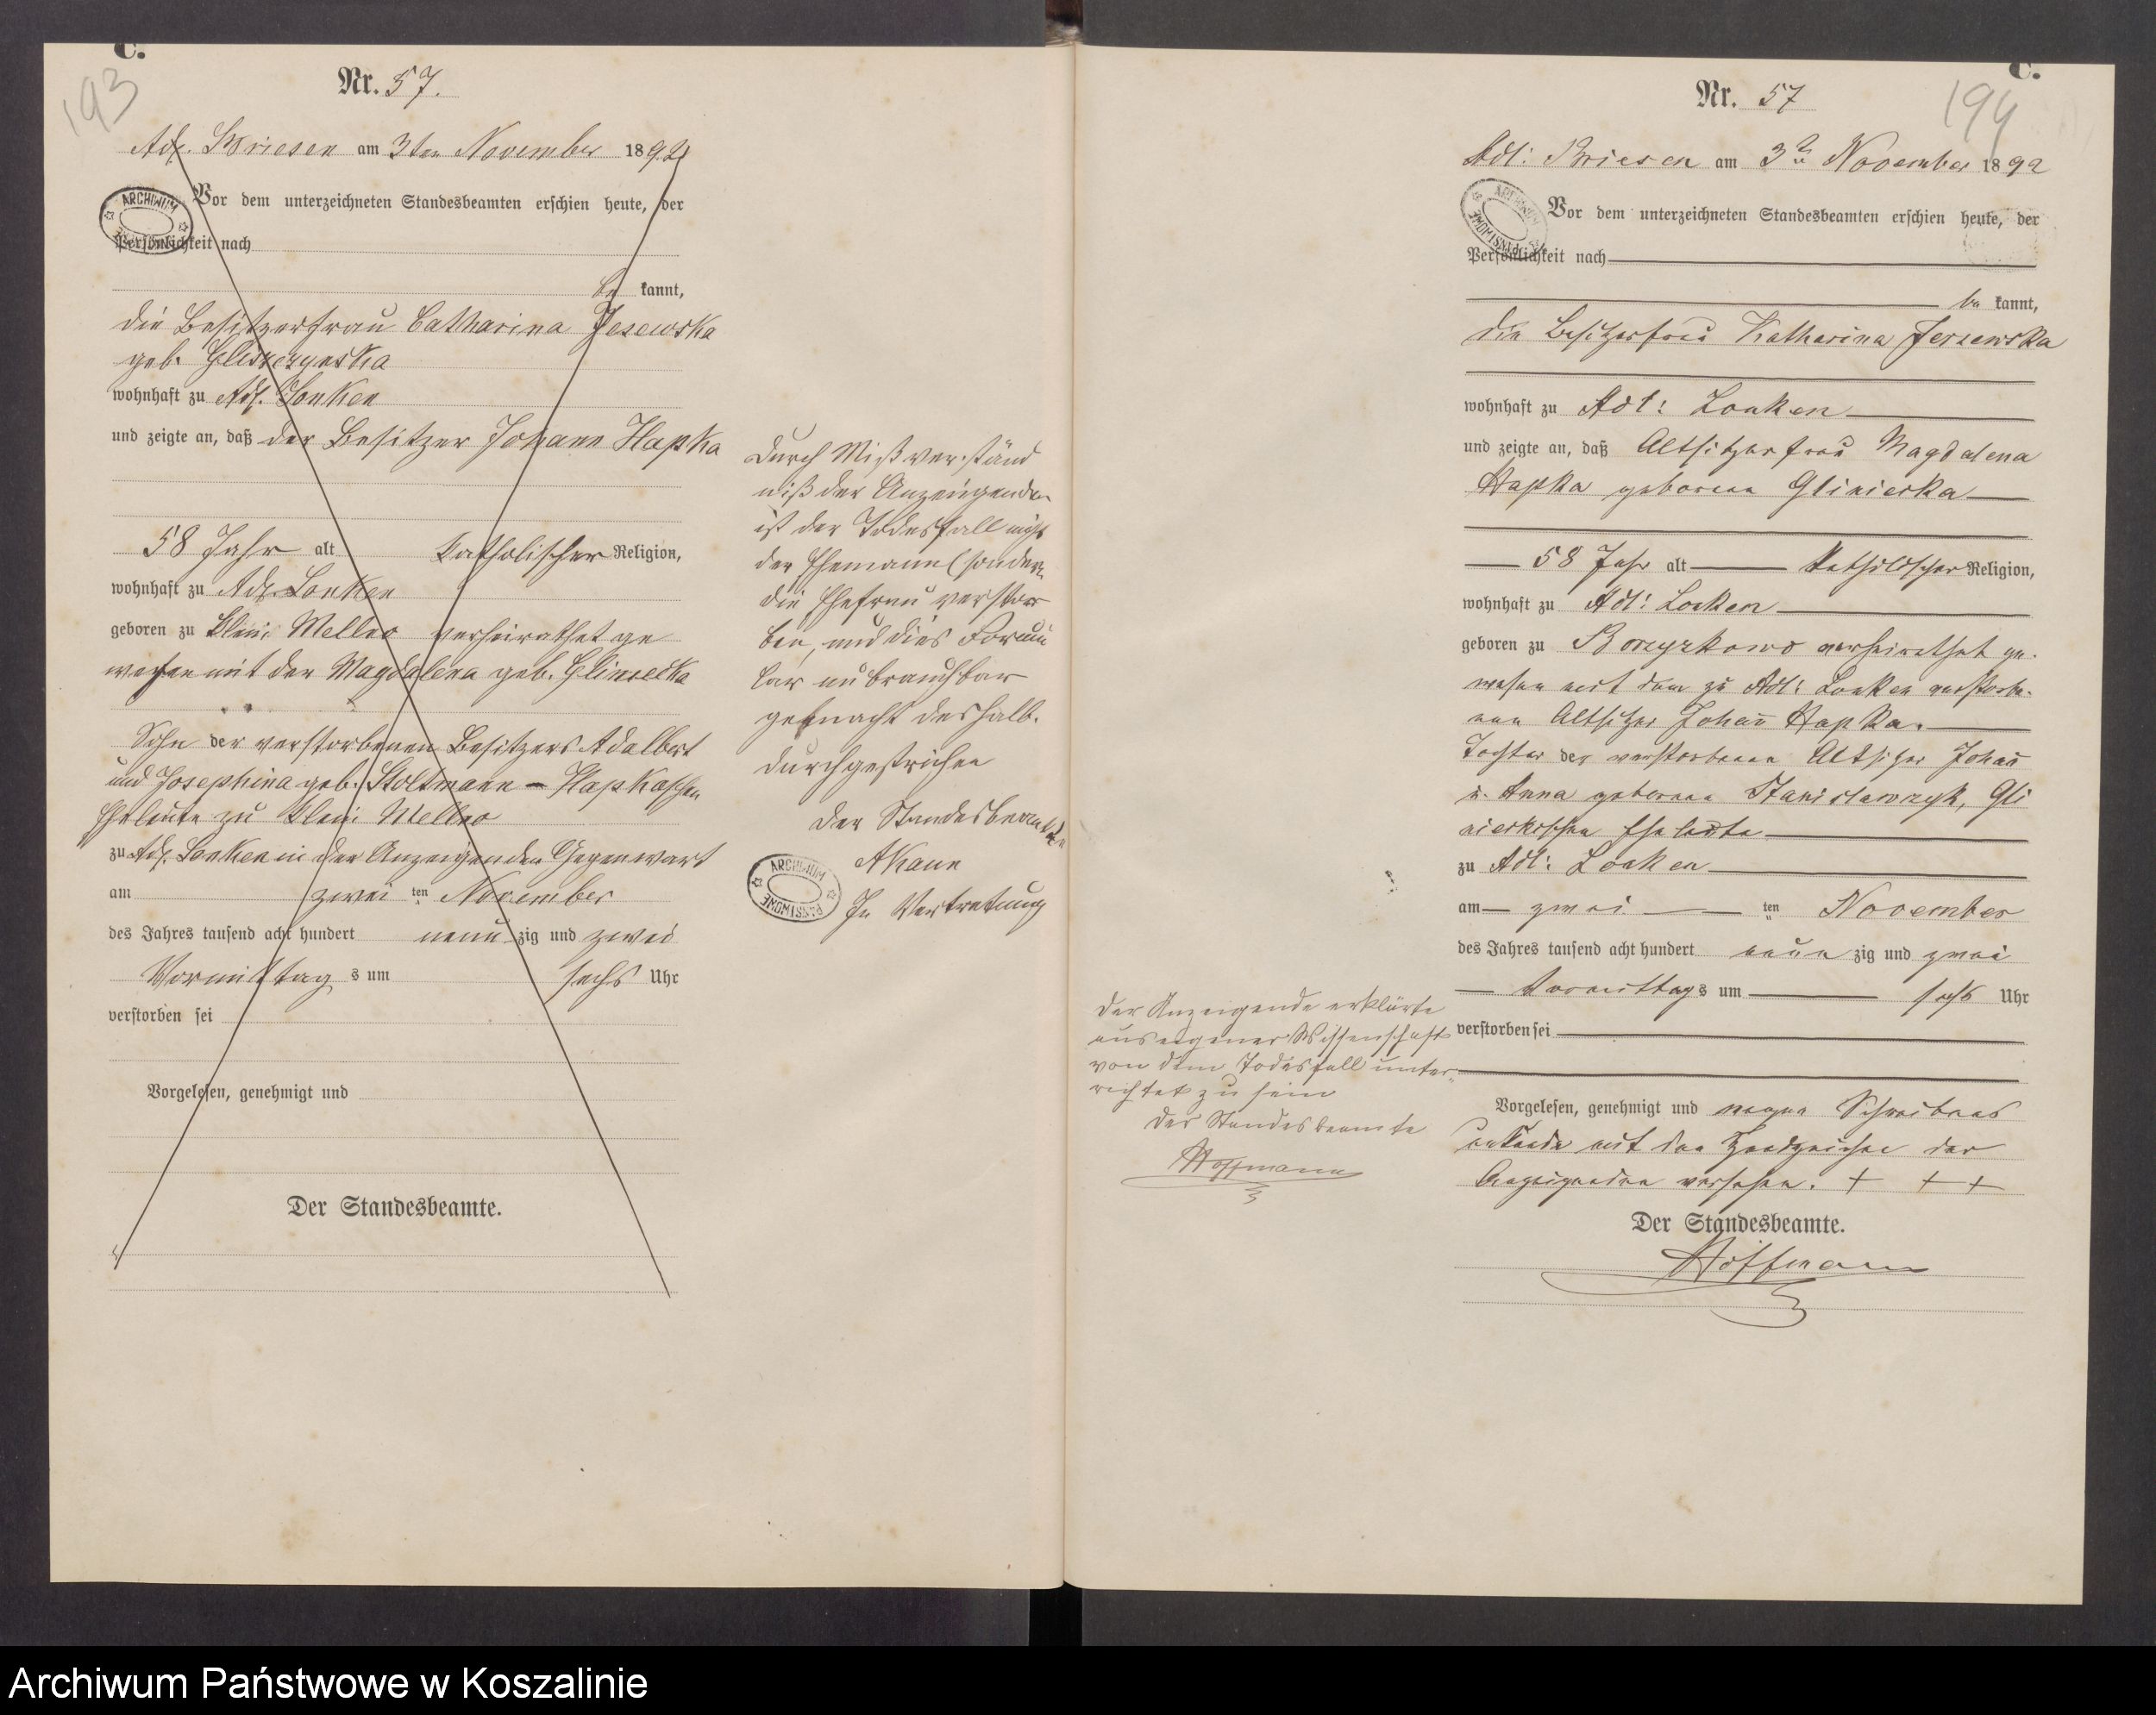 C.
193
Nr. 57.
Adl. Briesen am 3ten November 1892
Vor dem unterzeichneten Standesbeamten erschien heute, der
Persönlichkeit nach
be kannt,
die Besitzerfrau Catharina Jesewska
geb.
wohnhaft zu Adl. Lonken
und zeigte an, daß der Besitzer Johann Hapka
58 Jahr alt katholischer Religion,
wohnhaft zu Adl. Lonken
geboren zu Klein Melno verheirathet ge
wesen mit der Magdalena geb. Gliniecka
Sohn der verstorbenen Besitzers Adalbert
und Josephina geb. Stoltmann - Hapkaschen
Eheleute zu Klein Melno
zu Adl. Lonken in der Anzeigenden Gegenwart
am zwei ten November
des Jahres tausend acht hundert neun zig und zwei
Vormittag s um sechs Uhr
verstorben sei
Vorgelesen, genehmigt und
Der Standesbeamte.
Durch Mißverständ
niß der Anzeigenden
ist der Todesfall nicht
der Ehemann (sondern
die Ehefrau verstor
ben, und dies Formu
lar unbrauchbar
gemacht deshalb.
durchgestrichen
Der Standesbeamte
In Vertretung
ARCHIWUM PAŃSTWOWE
C.
194
Nr. 57
Adl: Briesen am 3ten November 1892
Vor dem unterzeichneten Standesbeamten erschien heute, der
Persönlichkeit nach
be kannt,
die Besitzerfrau Katharina Jerzewska
wohnhaft zu Adl: Lonken
und zeigte an, daß Altsitzerfrau Magdalena
Hapka geborene Gliniecka
58 Jahr alt katholischer Religion,
wohnhaft zu Adl: Lonken
geboren zu Borzyszkowo verheirathet ge-
wesen mit dem zu Adl: Lonken verstorbe-
nen Altsitzer Johann Hapka.
Tochter der verstorbenen Altsitzer Johann
u. Anna geborene Stanislawczyk, Gli
nieckischen Eheleute
zu Adl: Lonken
am zwei ten November
des Jahres tausend acht hundert neun zig und zwei
Vormittags um sechs Uhr
verstorben sei
Der Anzeigende erklärte
aus eigener Wissenschaft
von dem Todesfall unter-
richtet zu sein
Der Standesbeamte
Hoffmann
Vorgelesen, genehmigt und wegen Schreibens
unkunde mit den Handzeichen der
Anzeigenden versehen. + + +
Der Standesbeamte.
Hoffmann
Archiwum Państwowe w Koszalinie